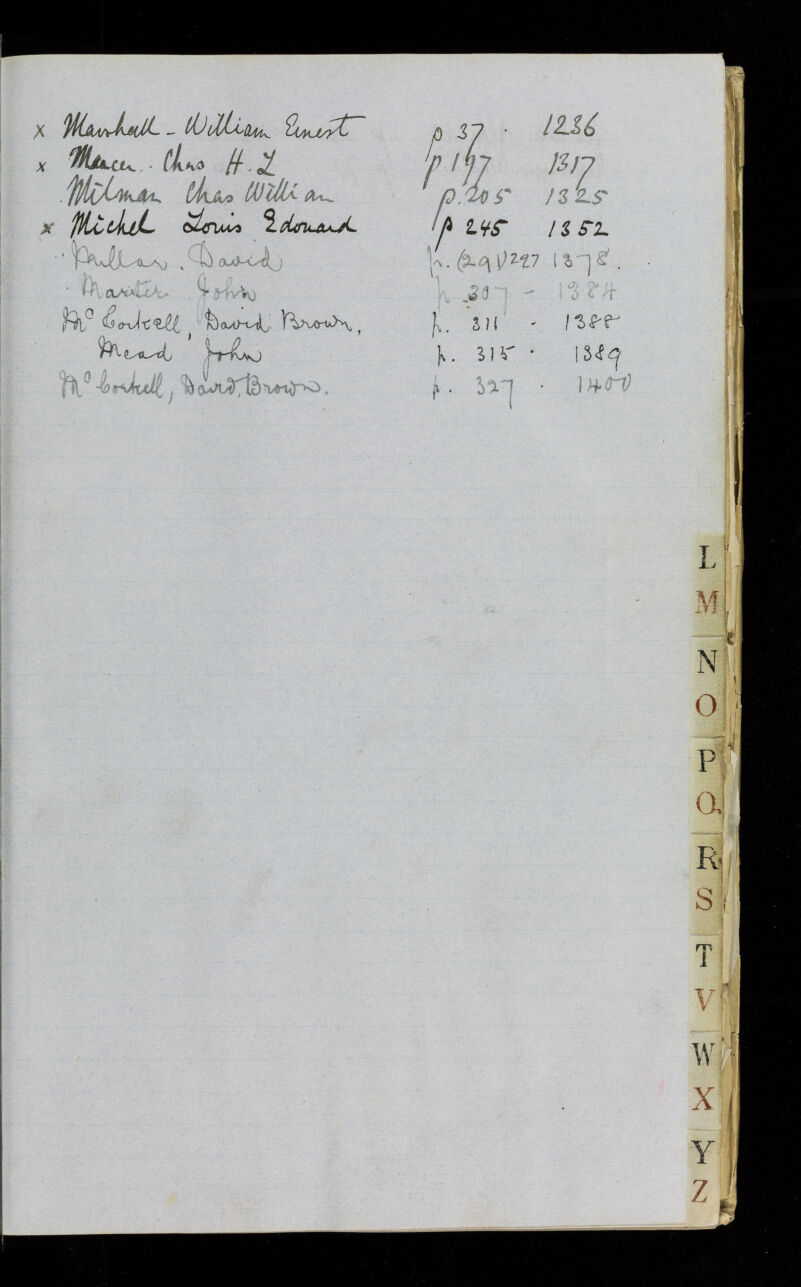 x Marshall - William Ernest p 37 · 1236
x Mercer · Chas H. L p 197 1317
Milman Chas William p. 205 1325
x Michel Louis Edouard p 245 1352
Millar, David p. (291) 297 1378.
John p. 307 - 1384
Mc Corkell, David Brown, p. 311 - 1388
Mead John p. 315 · 1389
Mc Corkell, David, Brown. p. 327 · 1400
L
M
N
O
P
Q
R
S
T
V
W
X
Y
Z